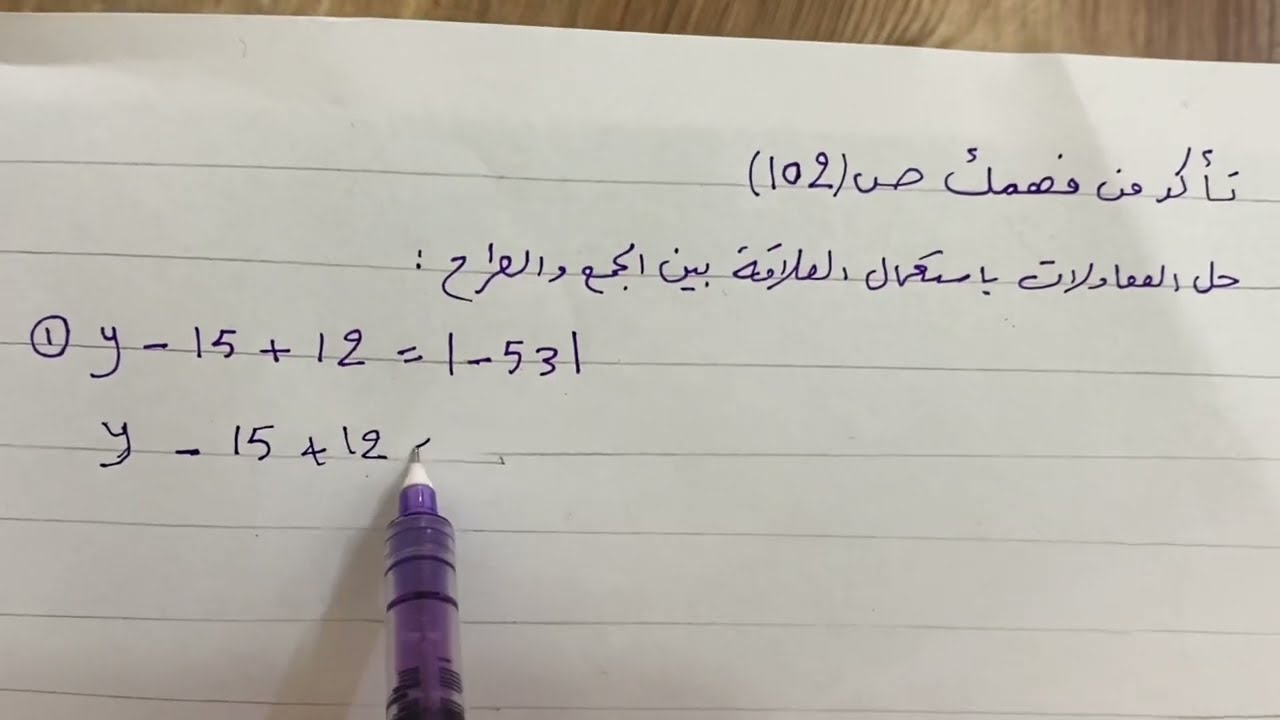 تأكد من فهمك ص(102)
حل المعادلات باستعمال العلاقة بين الجمع والطرح :
① y - 15 + 12 = |-53|
y - 15 + 12